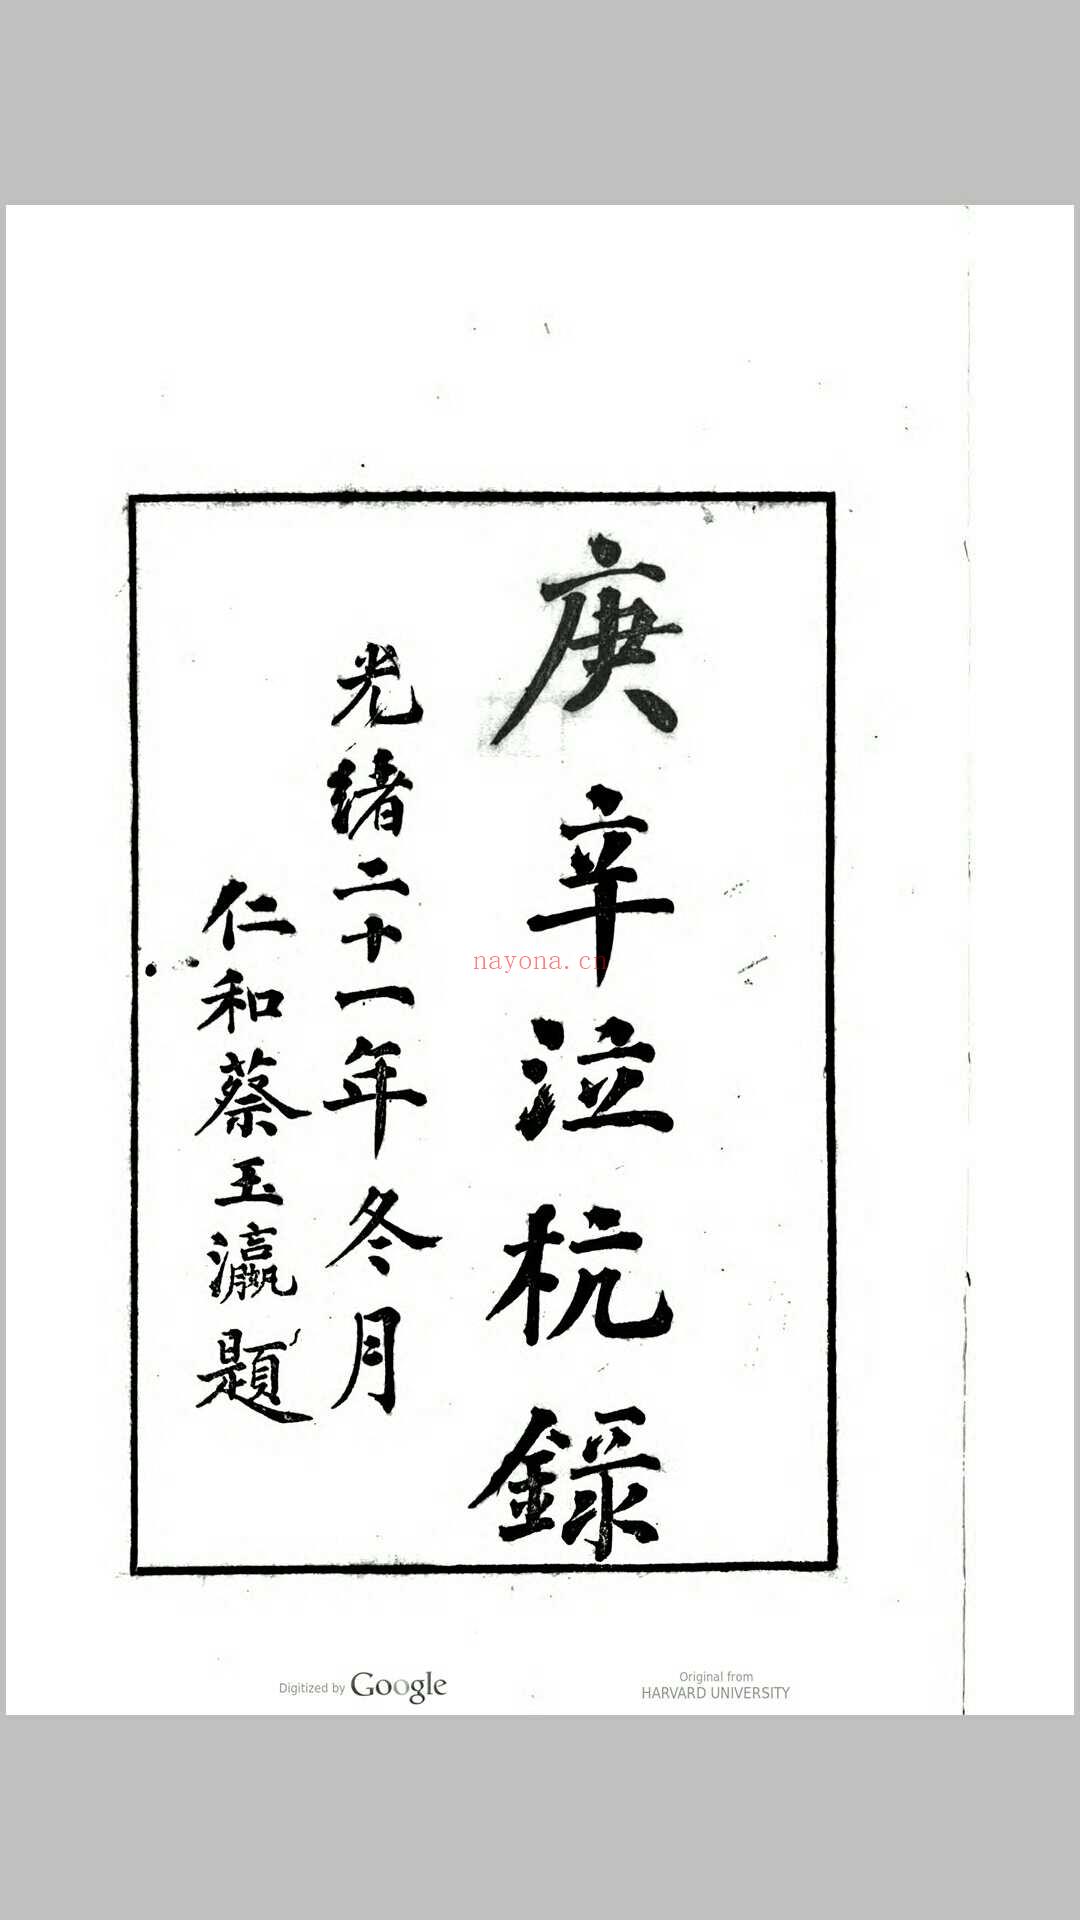 庚辛泣杭錄
光緒二十一年冬月
仁和蔡玉瀛題
nayona.cn
Digitized by Google
Original from
HARVARD UNIVERSITY